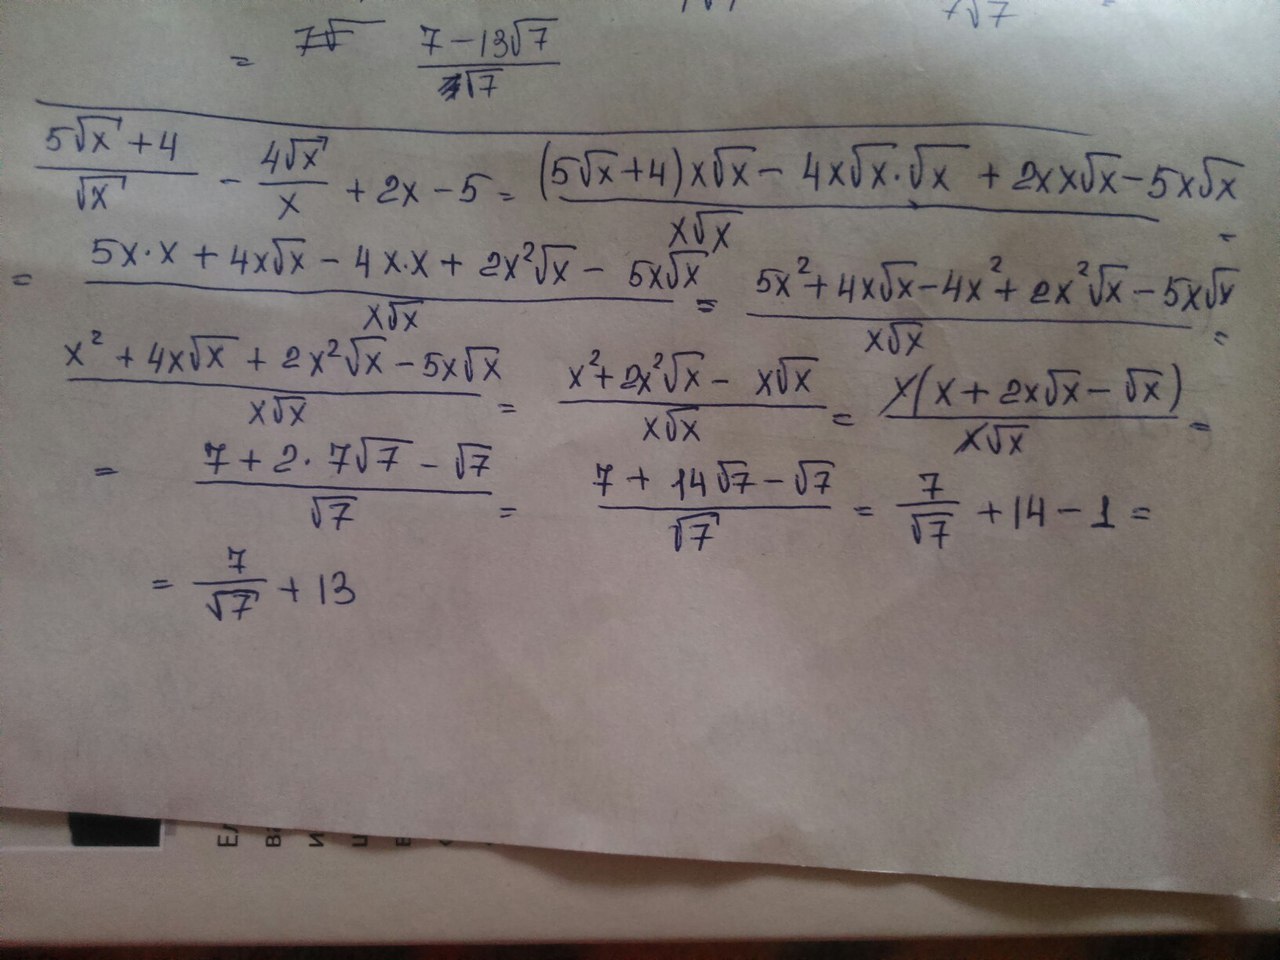 = (7 - 13√7)/√7
(5√x + 4)/√x - 4√x/x + 2x - 5 = ((5√x + 4)x√x - 4x√x · √x + 2xx√x - 5x√x)/(x√x) =
= (5x·x + 4x√x - 4x·x + 2x²√x - 5x√x)/(x√x) = (5x² + 4x√x - 4x² + 2x²√x - 5x√x)/(x√x) =
(x² + 4x√x + 2x²√x - 5x√x)/(x√x) = (x² + 2x²√x - x√x)/(x√x) = x(x + 2x√x - √x)/(x√x) =
= (7 + 2·7√7 - √7)/√7 = (7 + 14√7 - √7)/√7 = 7/√7 + 14 - 1 =
= 7/√7 + 13